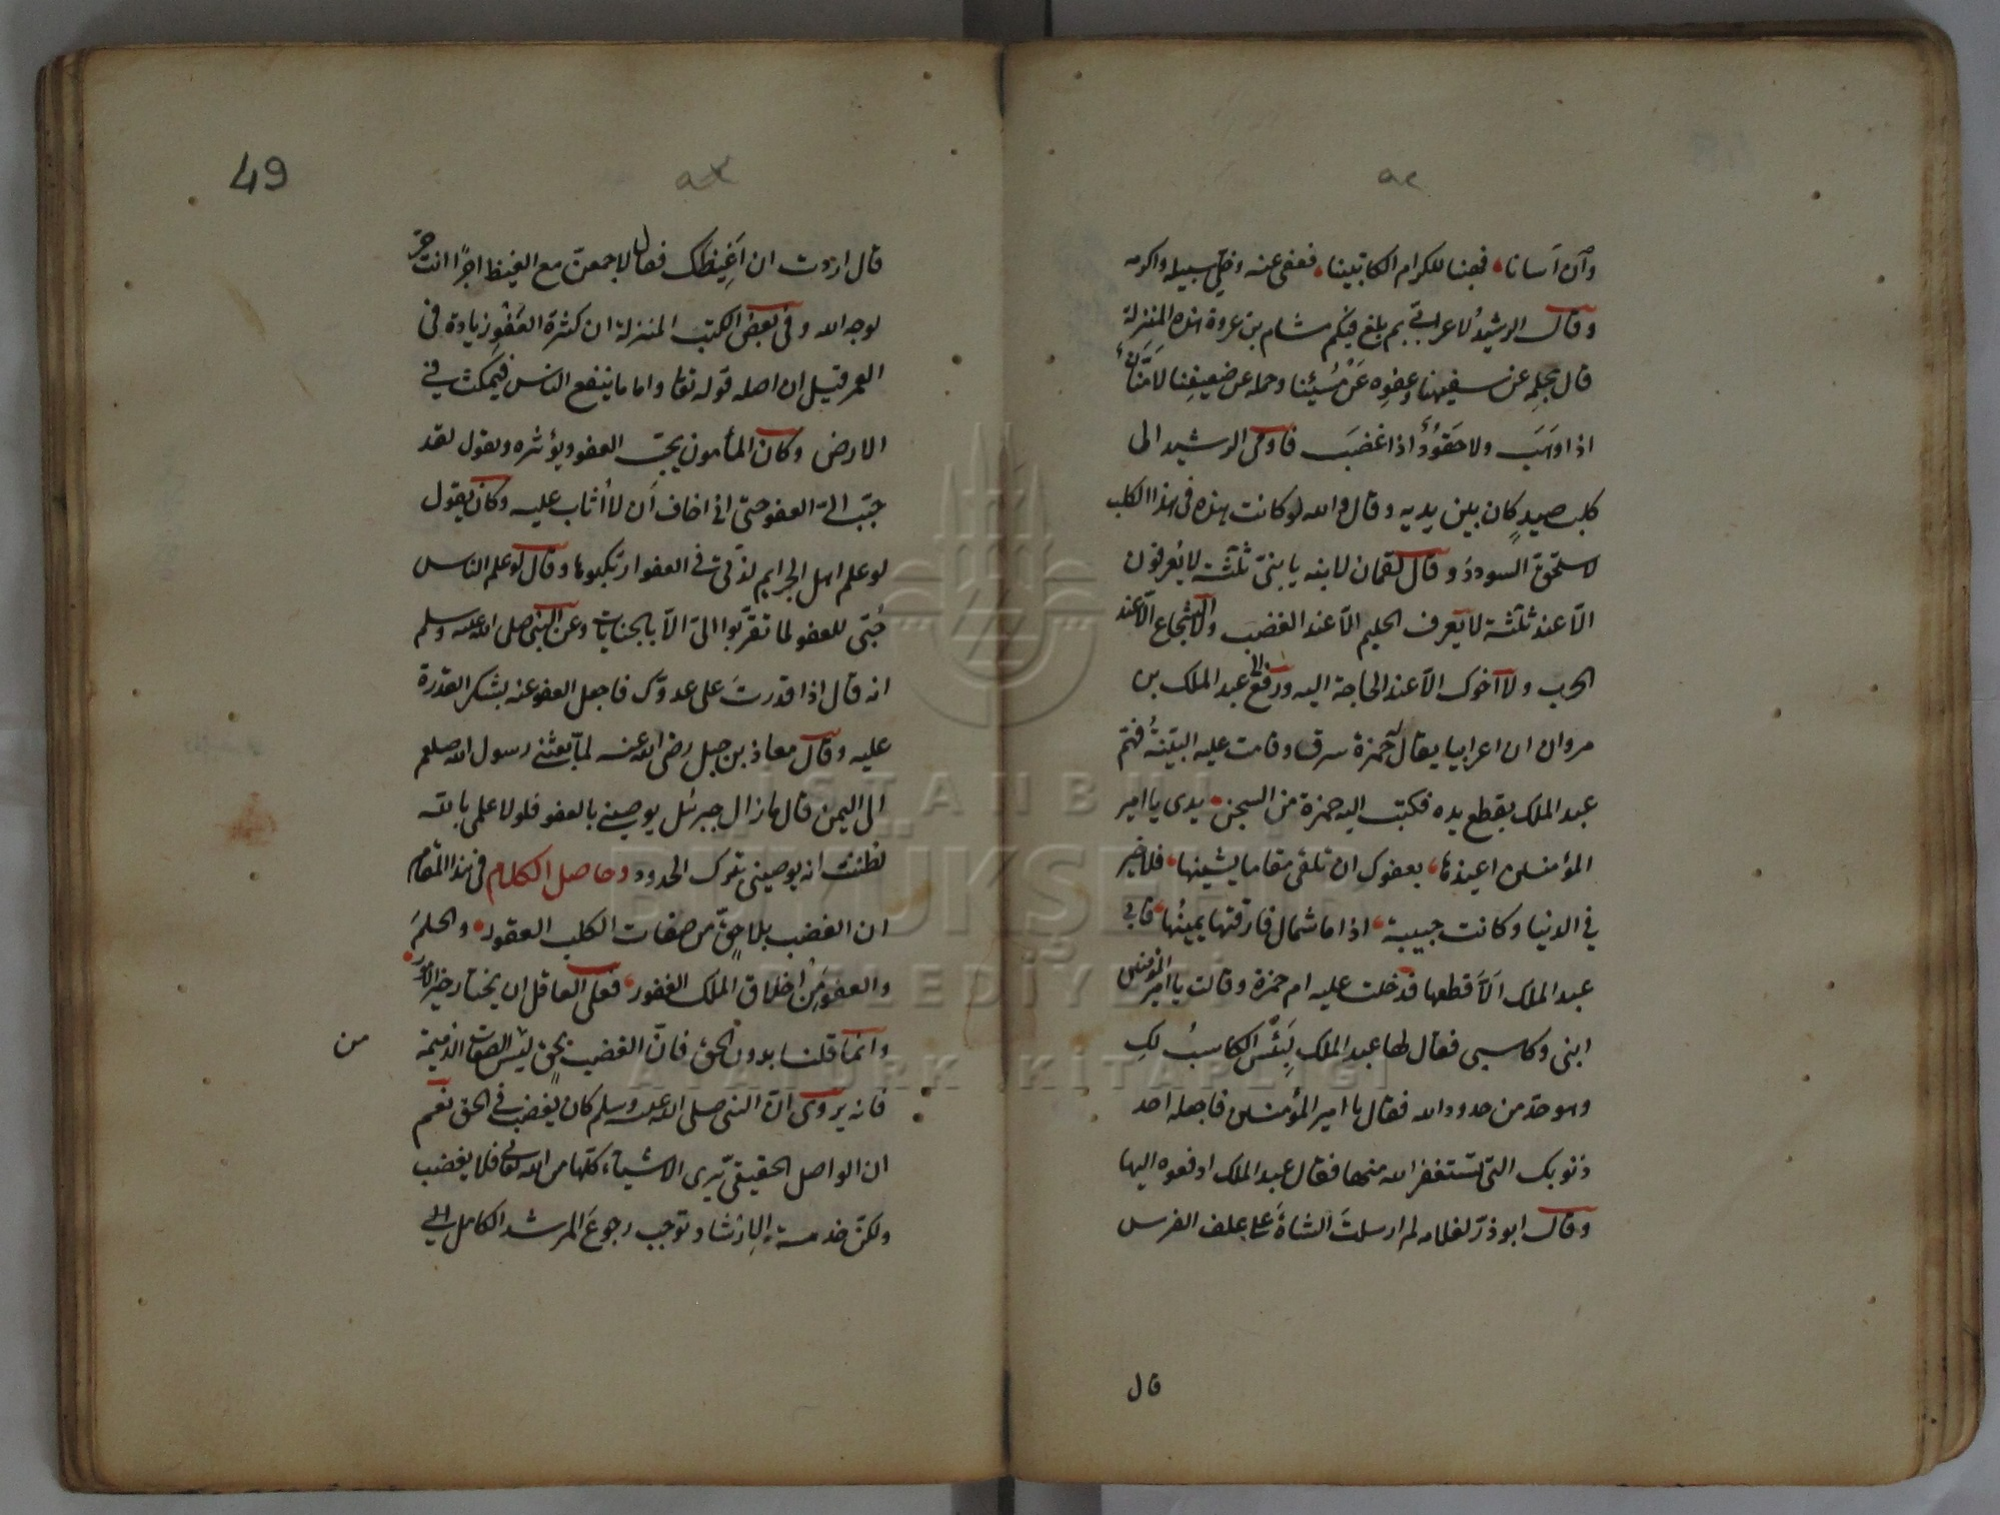 وان اسانا فهبنا للكرام الكاتبينا فعفى عنه وخلّى سبيله واكرمه
وقال الرشيد لاعرابي بم بلغ فيكم هشام بن عروة هذه المنزلة
قال بحلمه عن سفيهنا وعفوه عن مسيئنا وحمله عن ضعيفنا لا منّان
اذا وهب ولا حقود اذا غضب فاومى الرشيد الى
كلب صيد كان بين يديه وقال والله لو كانت هذه فى هذا الكلب
لاستحق السودد وقال لقمان لابنه يا بنىّ ثلثة لا يعرفون
الّا عند ثلثة لا يعرف الحليم الّا عند الغضب ولا الشجاع الّا عند
الحرب ولا اخوك الّا عند الحاجة اليه ورفع الى عبد الملك بن
مروان ان اعرابيا يقال له حمزة سرق وقامت عليه البيّنة فهمّ
عبد الملك بقطع يده فكتب اليه حمزة من السجن يدى يا امير
المؤمنين اعيذها بعفوك ان تلقى مقاما يشينها فلا خير
في الدنيا وكانت حبيبة اذا ما شمال فارقتها يمينها فابى
عبد الملك الّا قطعها فدخلت عليه ام حمزة وقالت يا امير المؤمنين
ابنى وكاسبى فقال لها عبد الملك بئس الكاسب لك
وهو حد من حدود الله فقال يا امير المؤمنين فاجعله احد
ذنوبك التى تستغفر الله منها فقال عبد الملك ادفعوه اليها
وقال ابو ذرّ لغلامه لم ارسلت الشاة على علف الفرس
قال
49
قال اردت ان اغيظك فقال لاجمعن مع الغيظ اجرًا انت حرّ
لوجه الله وفى بعض الكتب المنزلة ان كثرة العفو زيادة فى
العمر قيل ان اصله قوله تعا واما ما ينفع الناس فيمكث فى
الارض وكان المأمون يحبّ العفو ويؤثره ويقول لقد
حبّب الىّ العفو حتى انى اخاف ان لا اثاب عليه وكان يقول
لو علم اهل الجرايم لذّتى فى العفو ارتكبوها وقال لو علم الناس
حبّى للعفو لما تقرّبوا الىّ الّا بالجنايات وعن النبى صلى الله عليه وسلم
انه قال اذا قدرت على عدوّك فاجعل العفو عنه شكر القدرة
عليه وقال معاذ بن جبل رضى الله عنه لما بعثنى رسول الله صلعم
الى اليمن قال ما زال جبرئل يوصينى بالعفو فلولا علمى بالله
لظننت انه يوصينى بترك الحدود وحاصل الكلام فى هذا المقام
ان الغضب بلا حقّ من صفات الكلب العقور والحلم
والعفو من اخلاق الملك الغفور فعلى العاقل ان يختار خير الامور
وانما قلنا بدون الحق فانّ الغضب بحق ليس الصفات الذميمة
من
فانه يروى انّ النبى صلى الله عليه وسلم كان يغضب فى الحق نعم
ان الواصل الحقيقى يرى الاشياء كلّها من الله تعالى فلا يغضب
ولكن خدمة الارشاد توجب رجوع المرشد الكامل الى
İSTANBUL
BÜYÜKŞEHİR
BELEDİYESİ
ATATÜRK KİTAPLIĞI